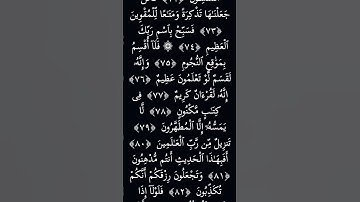 جَعَلْنَٰهَا تَذْكِرَةً وَمَتَٰعًا لِّلْمُقْوِينَ
﴿٧٣﴾ فَسَبِّحْ بِٱسْمِ رَبِّكَ
ٱلْعَظِيمِ ﴿٧٤﴾ ۞ فَلَآ أُقْسِمُ
بِمَوَٰقِعِ ٱلنُّجُومِ ﴿٧٥﴾ وَإِنَّهُۥ
لَقَسَمٌ لَّوْ تَعْلَمُونَ عَظِيمٌ ﴿٧٦﴾
إِنَّهُۥ لَقُرْءَانٌ كَرِيمٌ ﴿٧٧﴾ فِى
كِتَٰبٍ مَّكْنُونٍ ﴿٧٨﴾ لَّا
يَمَسُّهُۥٓ إِلَّا ٱلْمُطَهَّرُونَ ﴿٧٩﴾
تَنزِيلٌ مِّن رَّبِّ ٱلْعَٰلَمِينَ ﴿٨٠﴾
أَفَبِهَٰذَا ٱلْحَدِيثِ أَنتُم مُّدْهِنُونَ
﴿٨١﴾ وَتَجْعَلُونَ رِزْقَكُمْ أَنَّكُمْ
تُكَذِّبُونَ ﴿٨٢﴾ فَلَوْلَآ إِذَا